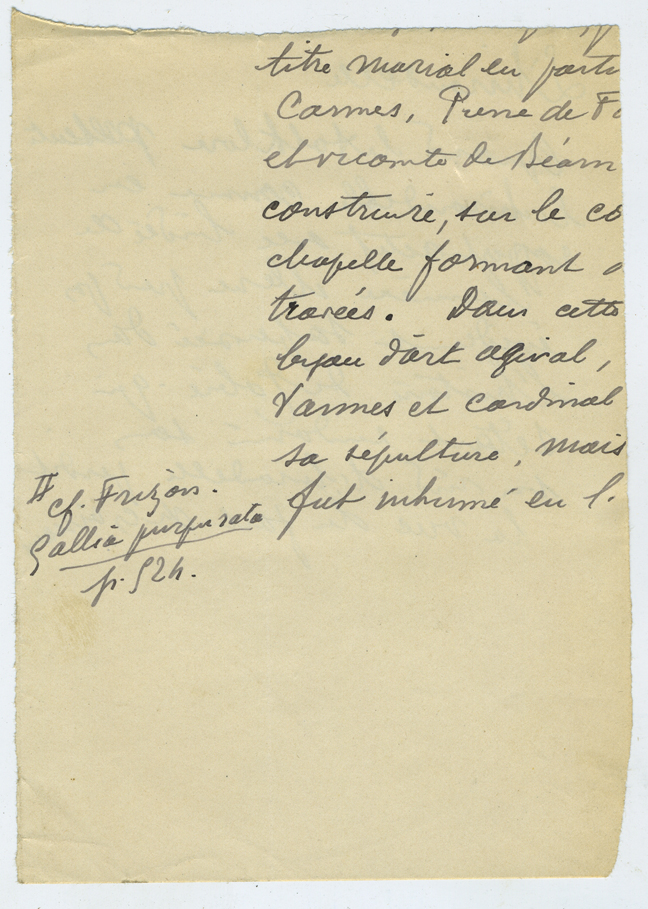 titre marial en parti
Carmes, Pierre de Fo
et vicomte de Béarn
construire, sur le co
chapelle formant
travées. Dans cette
bijou d'art ogival,
Vannes et cardinal
sa sépulture, mais
fut inhumé en l.
cf. Frizon.
Gallia purpurata
p. 524.